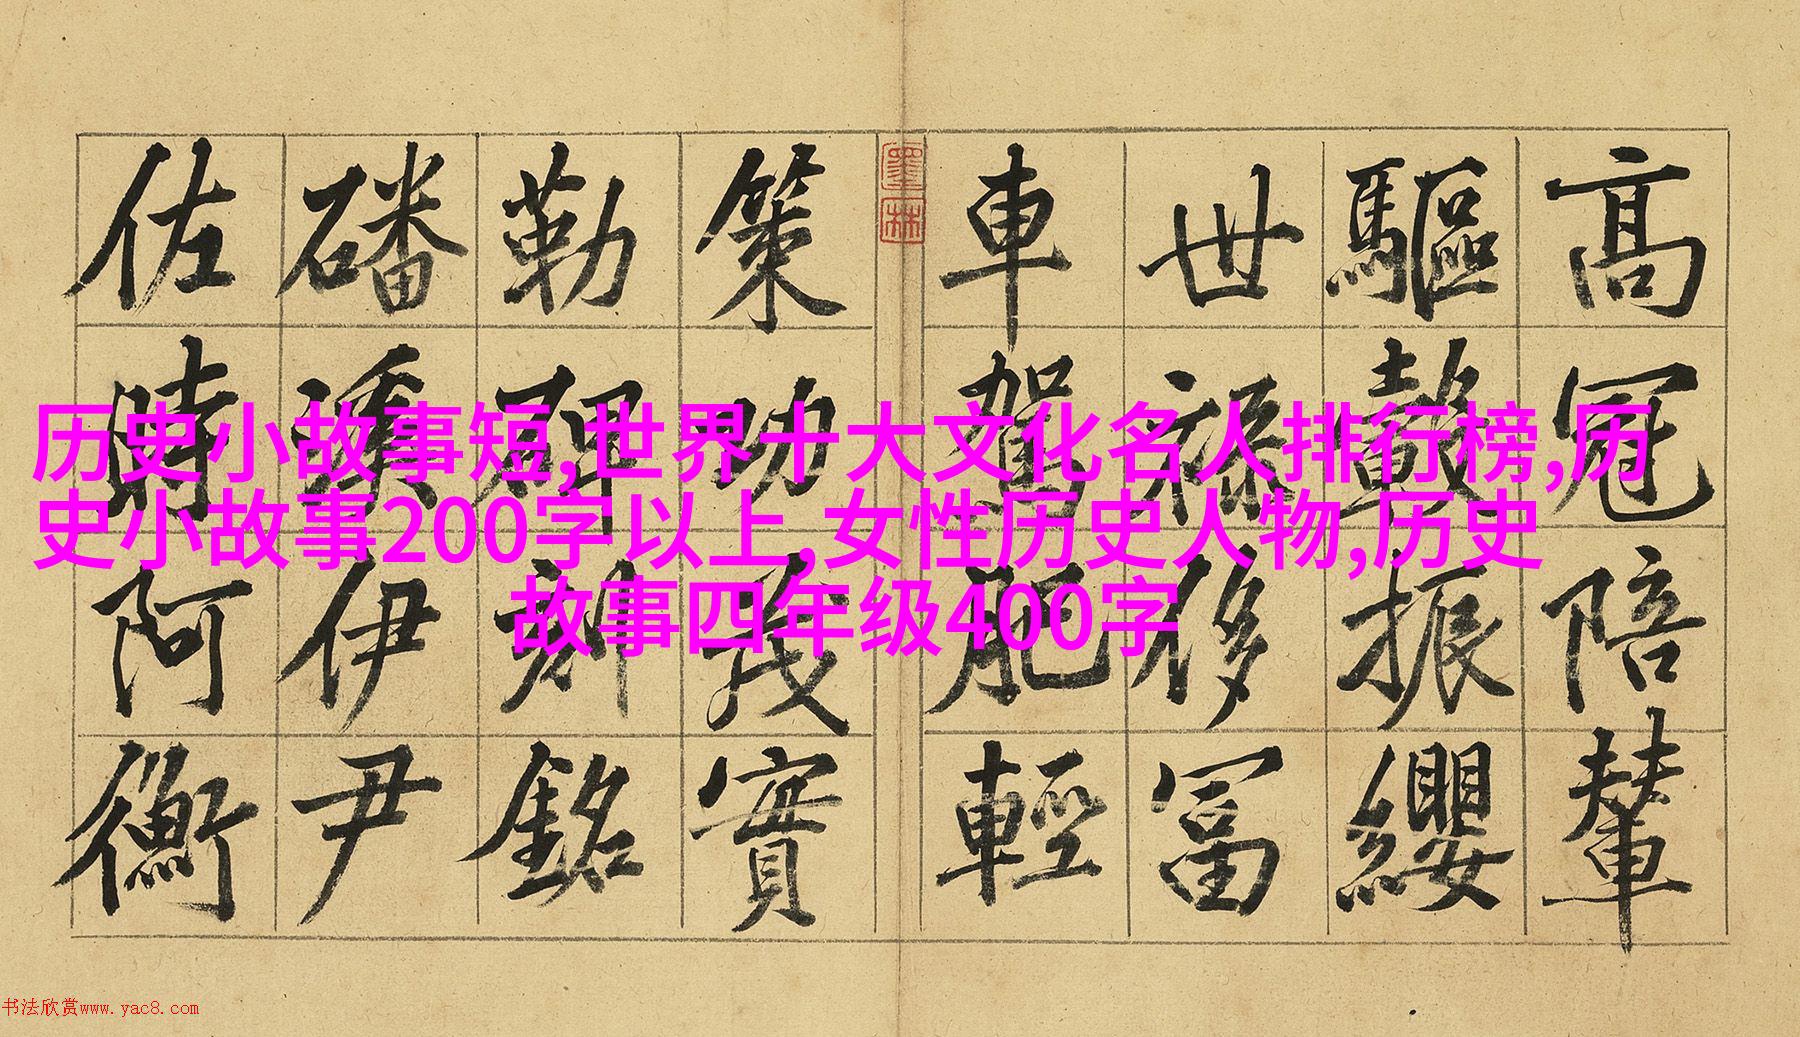 高冠陪輦
驅轂振纓
世祿侈富
車駕肥輕
策功茂實
勒碑刻銘
磻溪伊尹
佐時阿衡
墨林
历史小故事短,世界十大文化名人排行榜,历
史小故事200字以上,女性历史人物,历史
故事四年级400字
书法欣赏www.yac8.com